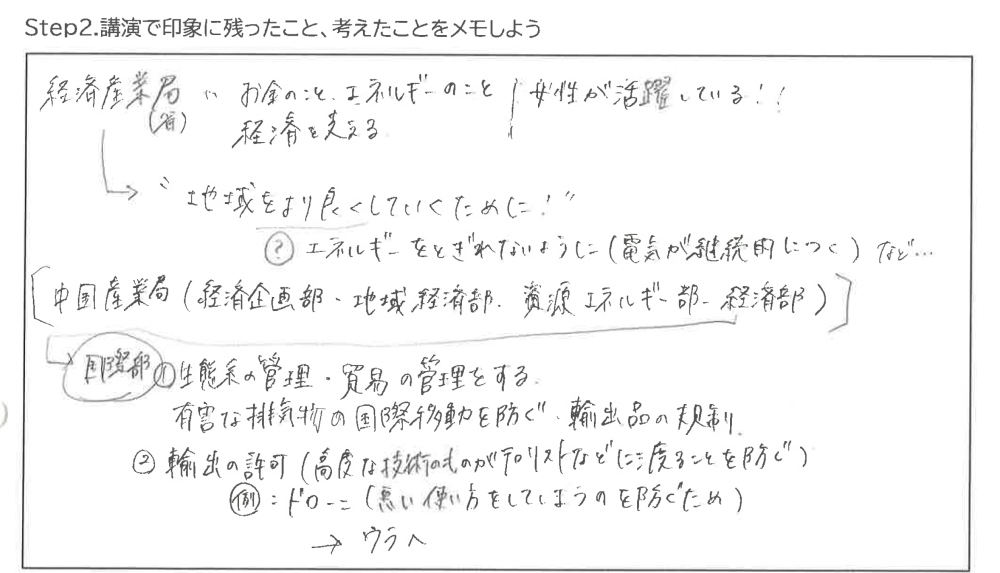 Step2.講演で印象に残ったこと、考えたことをメモしよう
経済産業局 い お金のこと、エネルギーのこと 女性が活躍している!!
(省) 経済を支える
"地域をより良くしていくために!"
? エネルギーをとぎれないように(電気が継続的につく)など…
[中国産業局(経済企画部・地域経済部・資源エネルギー部・経済部)]
国際部 ①生態系の管理・貿易の管理をする。
有害な排気物の国際移動を防ぐ・輸出品の規制。
② 輸出の許可(高度な技術のものがテロリストなどに渡ることを防ぐ)
例:ドローン(悪い使い方をしてしまうのを防ぐため)
→ウラへ